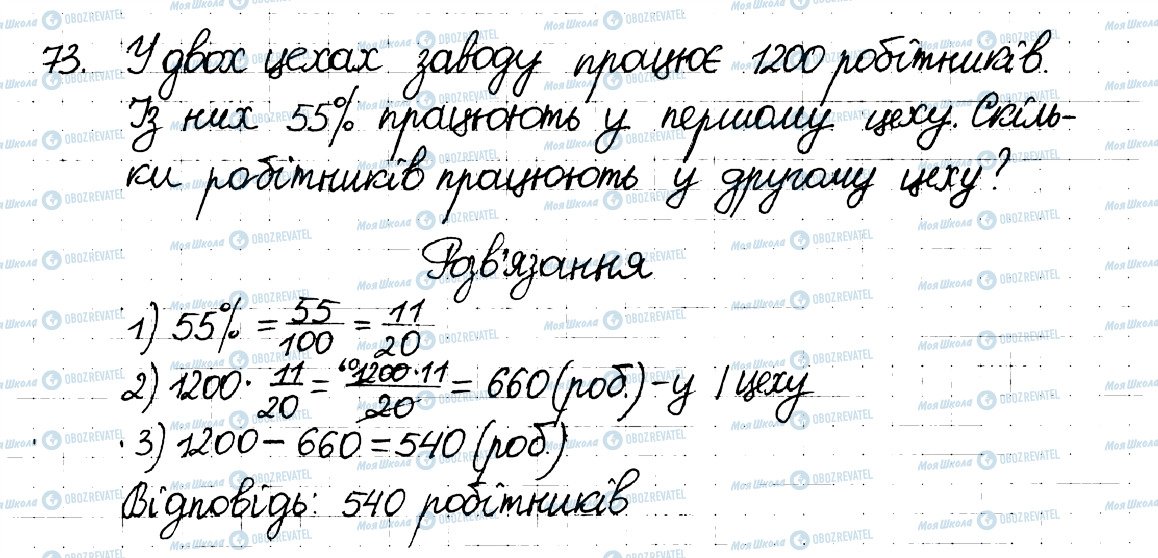 73. У двох цехах заводу працює 1200 робітників.
Із них 55% працюють у першому цеху. Скіль-
ки робітників працюють у другому цеху?
Розв'язання
1) 55% = 55/100 = 11/20
2) 1200 · 11/20 = 60 1200·11/20 = 660 (роб.) - у I цеху
3) 1200 - 660 = 540 (роб.)
Відповідь: 540 робітників
Моя Школа OBOZREVATEL